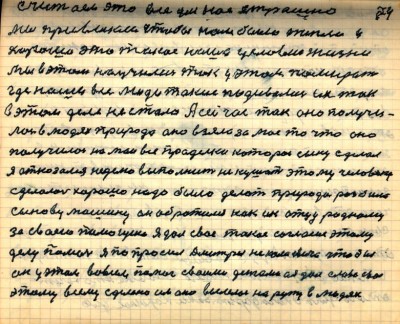 считаем это все для нас страшно
мы привыкли чтобы нам было тепло и
хорошо это такое наша условие жизни
мы в этом научились так и этом помирать
где наши все люди такие подевались их так
в этом деле не стало А сейчас так оно получи-
лось в людях природа она взяла за мое то что оно
получилось на мои все проделки которая сыну сделал
я отказался надо выполнить не кушать этому человеку
сделалось хорошо надо было делать природа разбила
сынову машину он обратился как их отцу родному
за своею помощию я дал свое такое согласие этому
делу помочь я попросил Дмитрия что бы
он у этом вовсем помог своими делами я дал слово свое
этому всему сделано им оно вышло на руку в людях